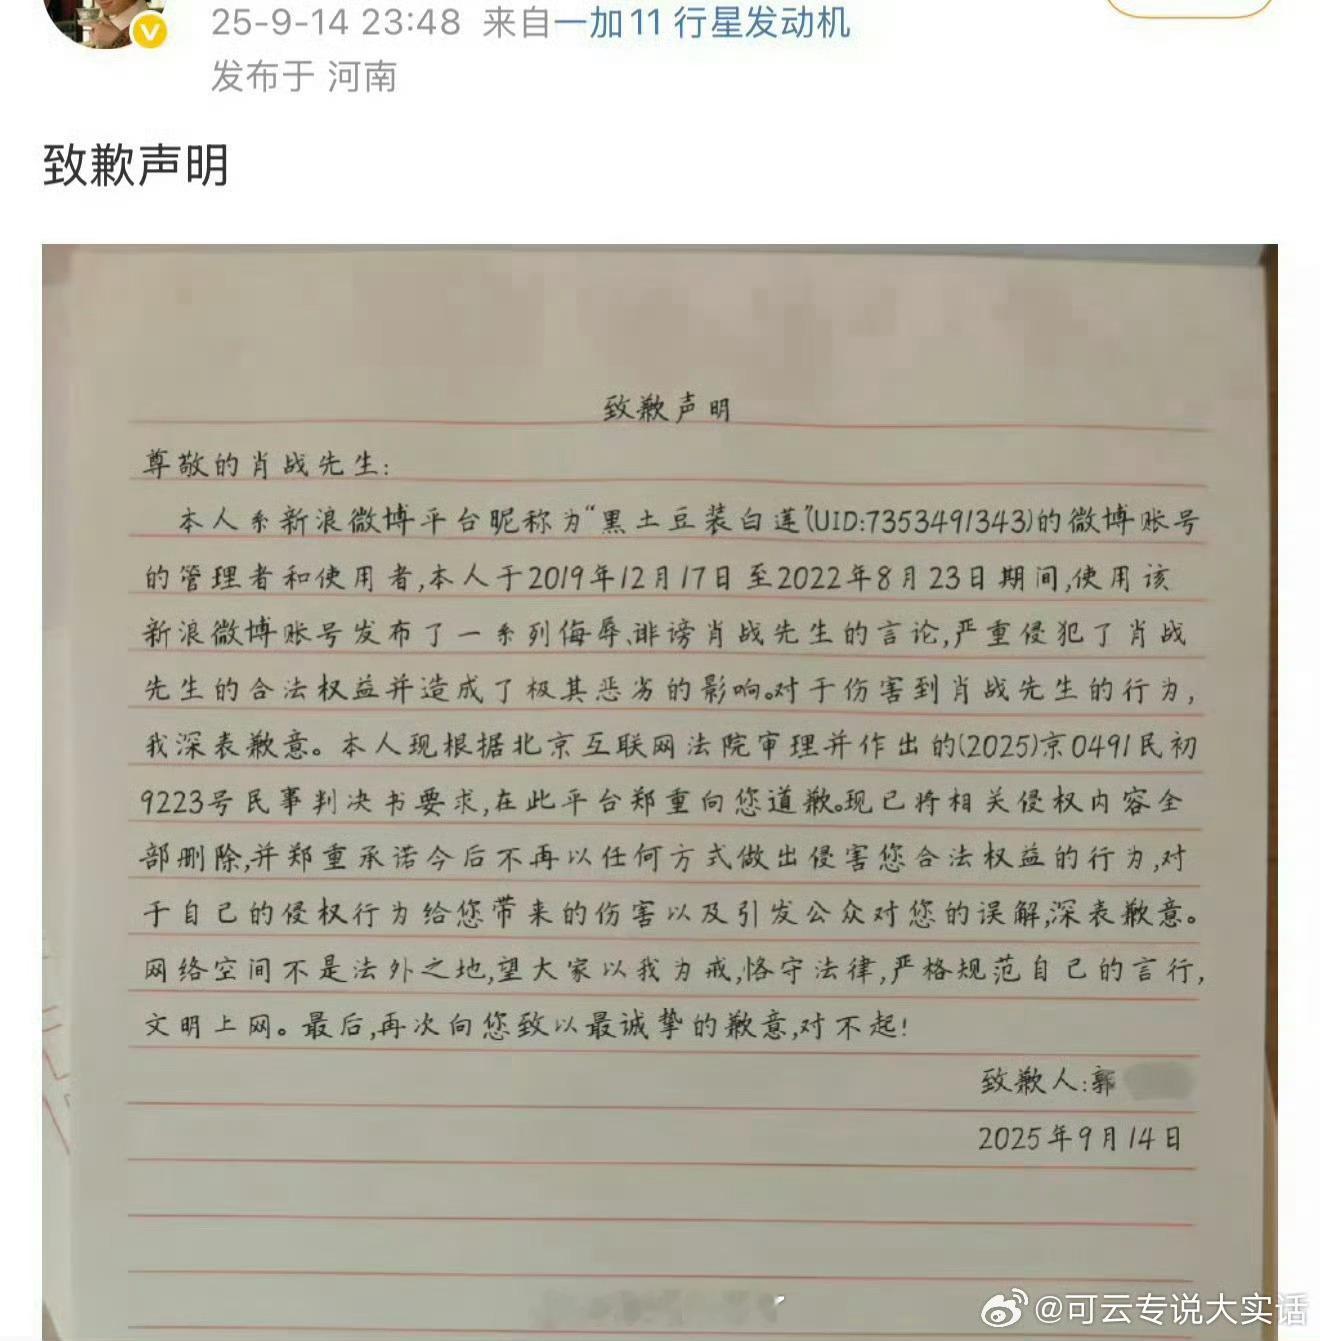 25-9-14 23:48 来自一加11 行星发动机
发布于 河南
致歉声明
致歉声明
尊敬的肖战先生:
本人系新浪微博平台昵称为“黑土豆装白莲”(UID:7353491343)的微博账号
的管理者和使用者,本人于2019年12月17日至2022年8月23日期间,使用该
新浪微博账号发布了一系列侮辱、诽谤肖战先生的言论,严重侵犯了肖战
先生的合法权益并造成了极其恶劣的影响。对于伤害到肖战先生的行为,
我深表歉意。本人现根据北京互联网法院审理并作出的(2025)京0491民初
9223号民事判决书要求,在此平台郑重向您道歉。现已将相关侵权内容全
部删除,并郑重承诺今后不再以任何方式做出侵害您合法权益的行为,对
于自己的侵权行为给您带来的伤害以及引发公众对您的误解,深表歉意。
网络空间不是法外之地,望大家以我为戒,恪守法律,严格规范自己的言行,
文明上网。最后,再次向您致以最诚挚的歉意,对不起!
致歉人:郭
2025年9月14日
@可云专说大实话